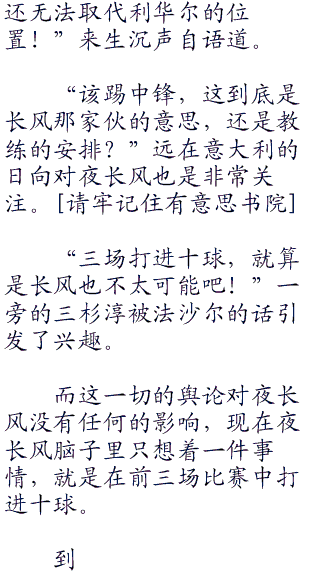 还无法取代利华尔的位
置！”来生沉声自语道。
“该踢中锋，这到底是
长风那家伙的意思，还是教
练的安排？”远在意大利的
日向对夜长风也是非常关
注。[请牢记住有意思书院]
“三场打进十球，就算
是长风也不太可能吧！”一
旁的三杉淳被法沙尔的话引
发了兴趣。
而这一切的舆论对夜长
风没有任何的影响，现在夜
长风脑子里只想着一件事
情，就是在前三场比赛中打
进十球。
到